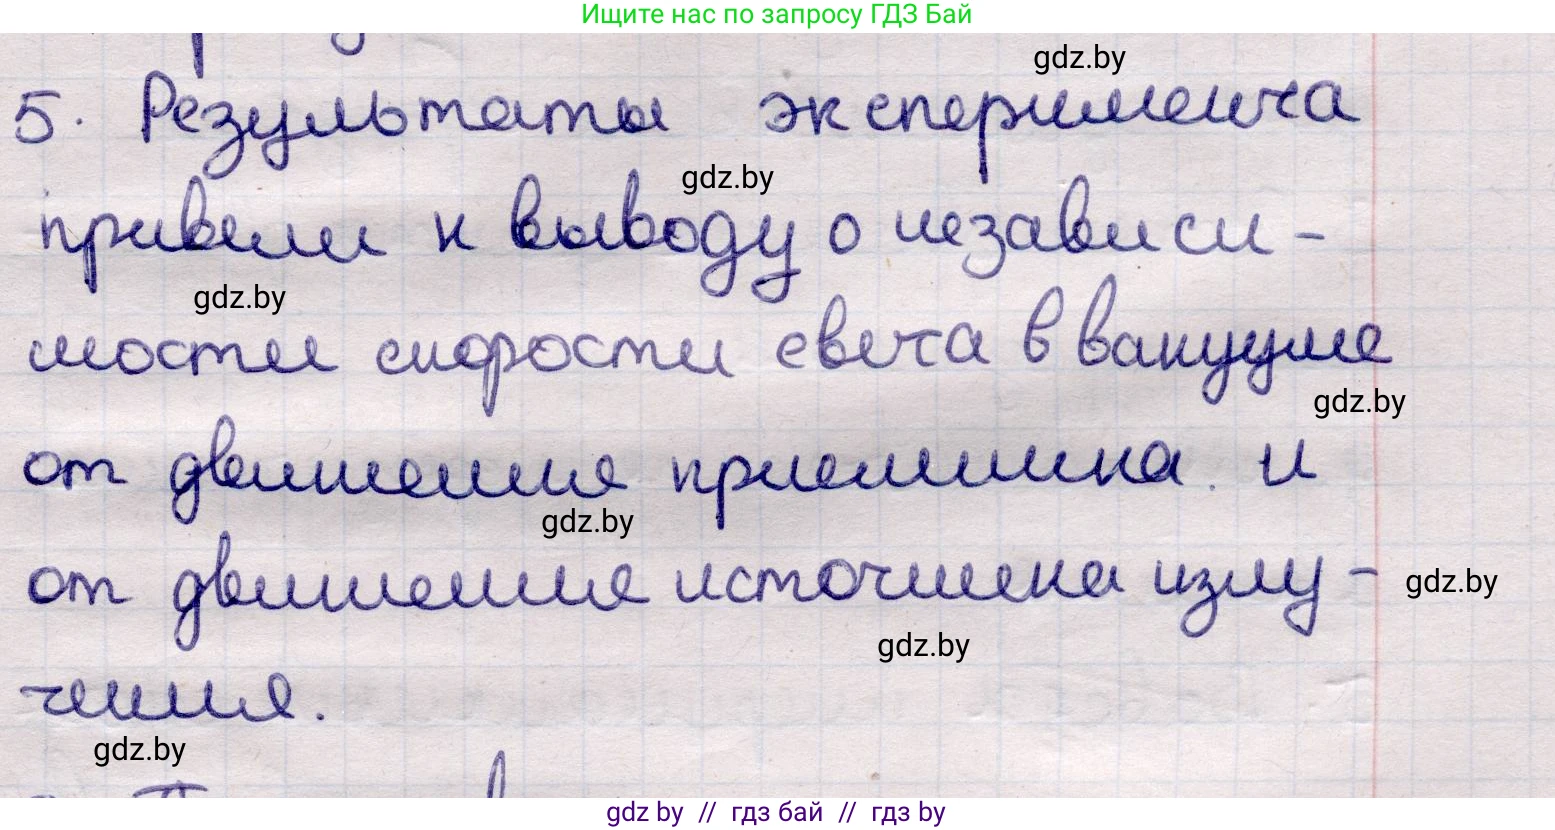 Ищите нас по запросу ГДЗ Бай
gdz.by
5. Результаты эксперимента
gdz.by
привели к выводу о независи-
gdz.by
мости скорости света в вакууме
gdz.by
от движения приемника и
gdz.by
от движения источника излу-
gdz.by
gdz.by
чения.
gdz.by
gdz by // гдз бай // гдз by